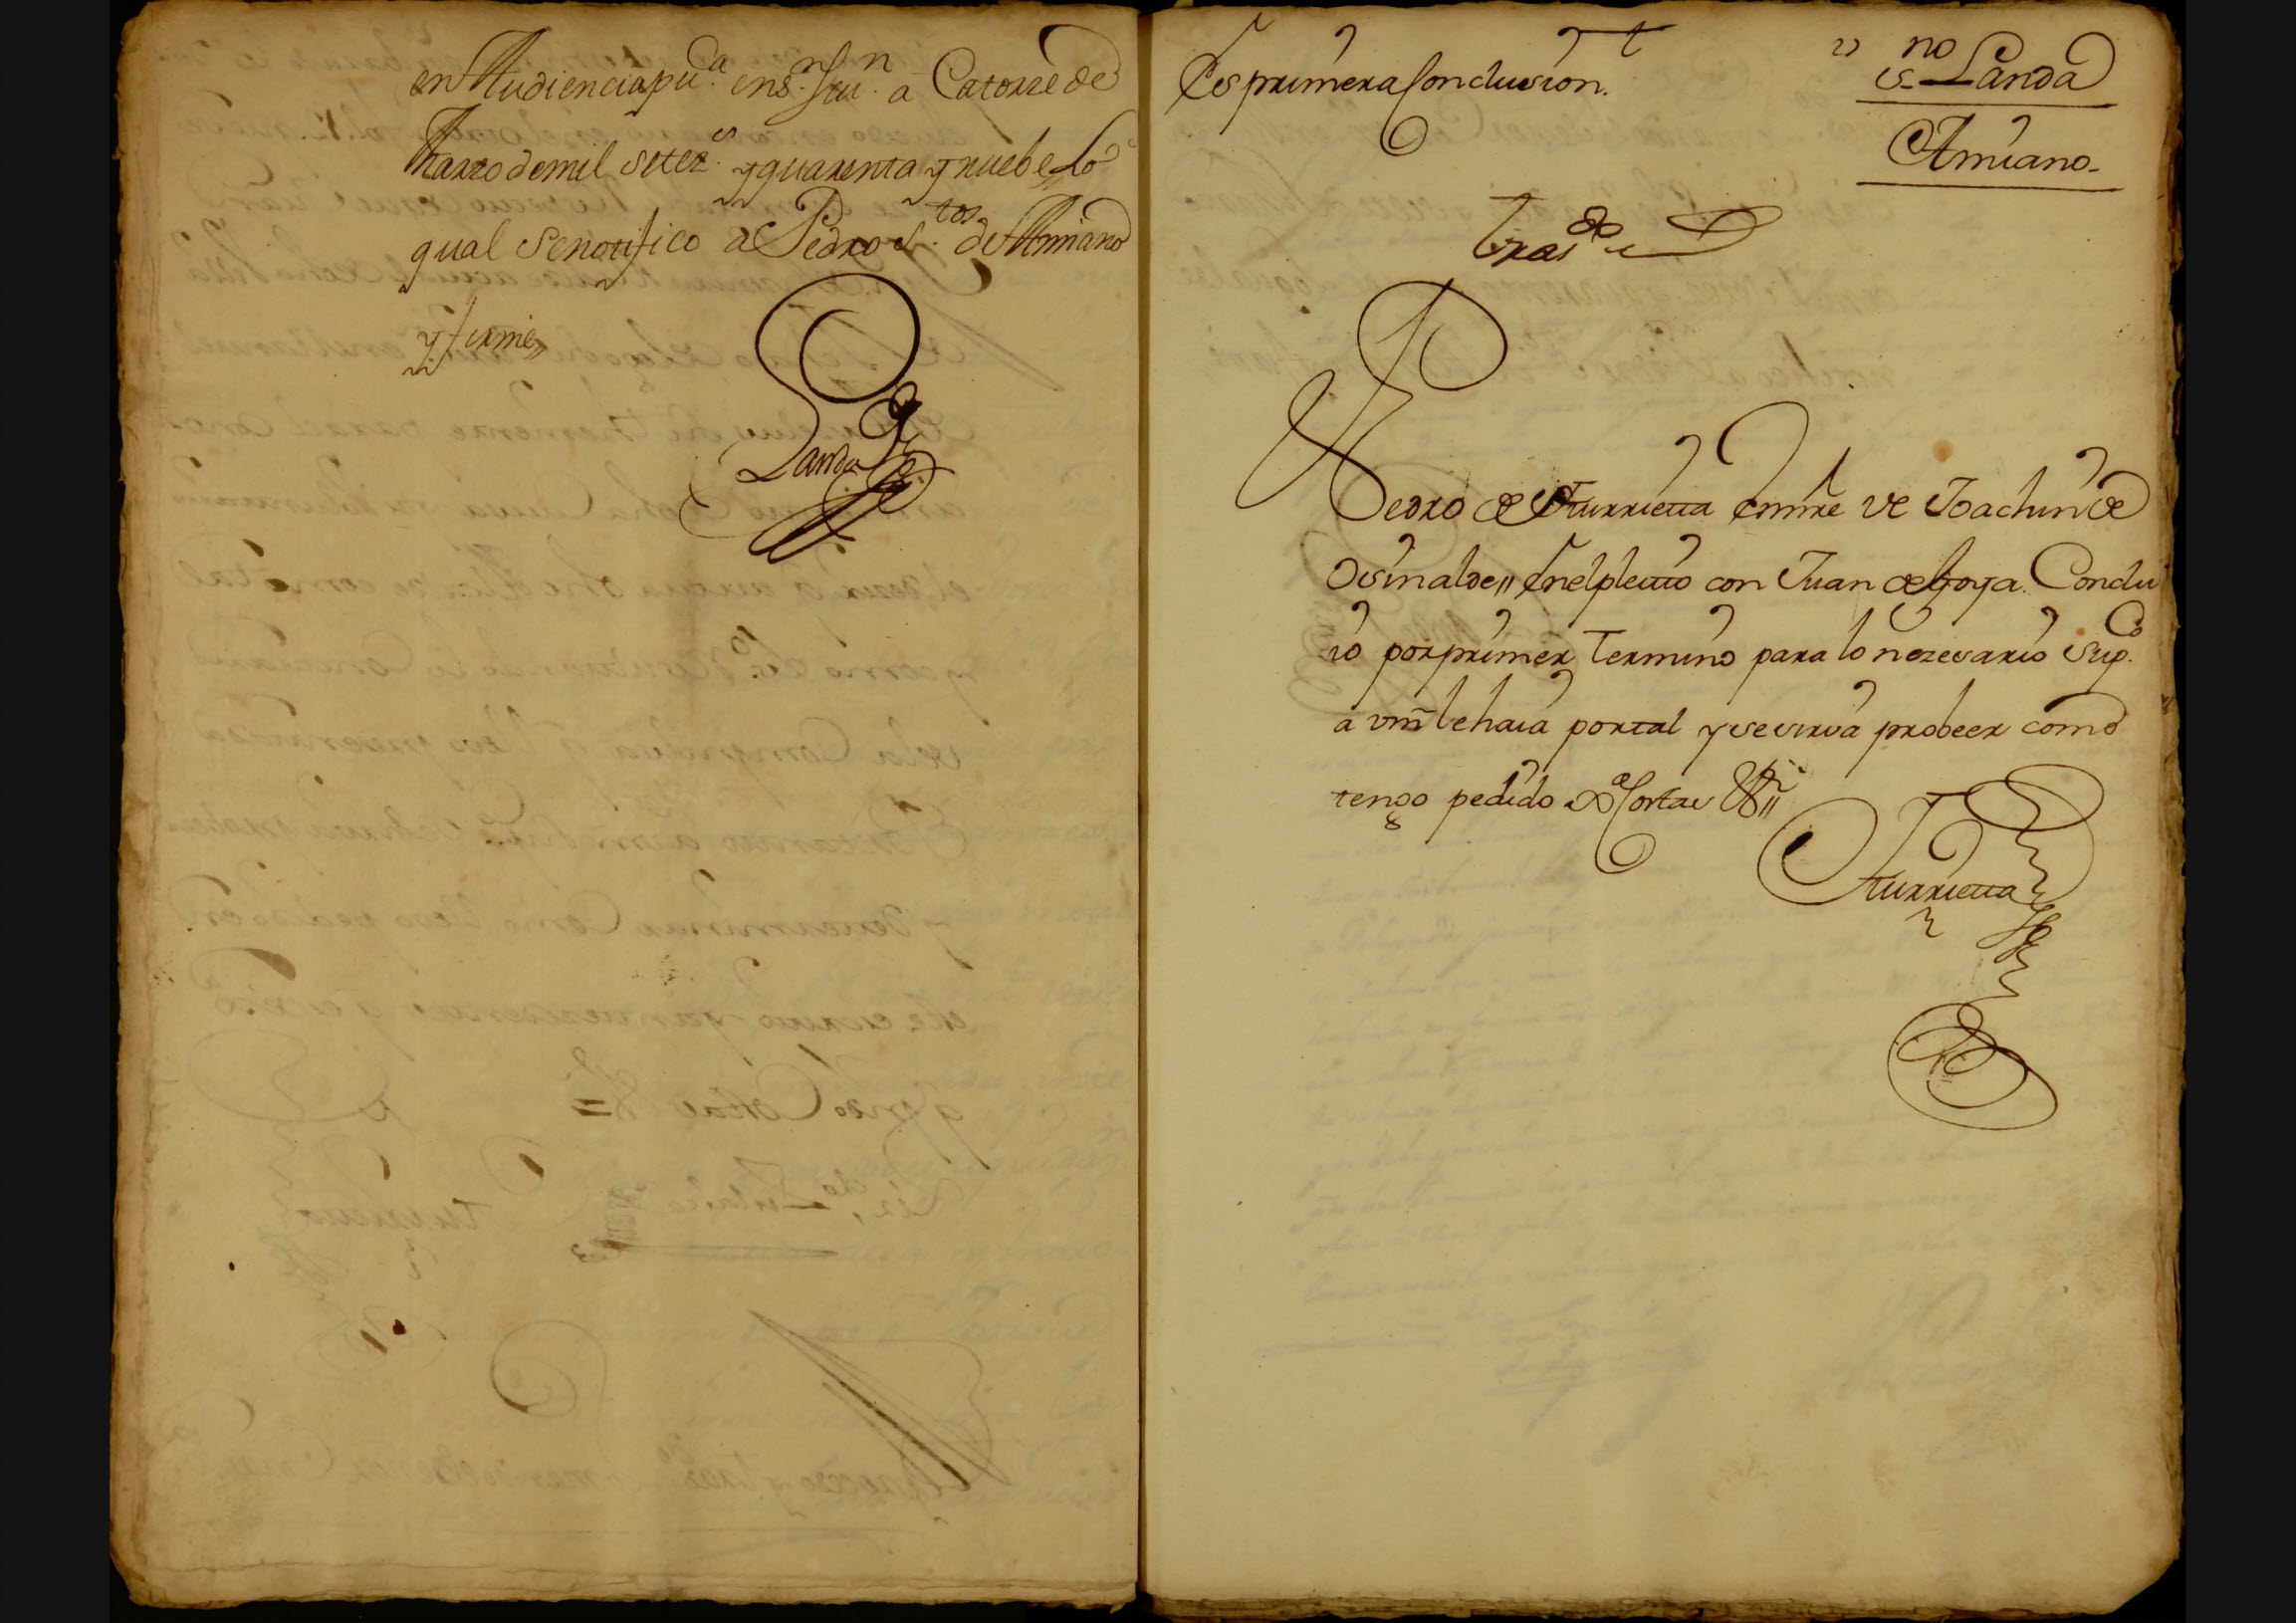 en Audiencia pu.ca en s.n Seu.n a Catorze de
Marzo de mil setez.s y quarenta y nuebe lo
qual se notifico a Pedro S.tos de Amiano
y firme,,
Landa
Es primera Conclusion.
no
es. Landa
Amiano-
Tras.do
Pedro de Yturrieta en nre de Joachin de
Osinalde,, En el pleito con Juan de Goya. Conclu
io por primer termino para lo nezesario Sup.co
a vm le haia por tal y se sirva probeer como
tengo pedido Costas &,,
Yturrieta